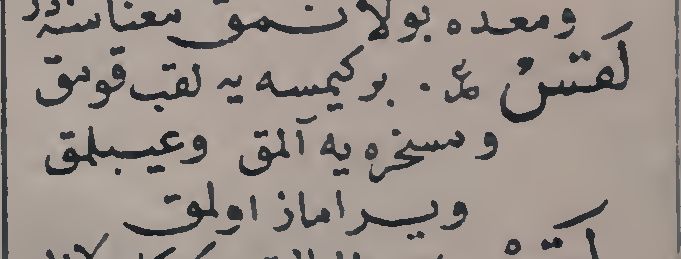 ومعده بولانمق معناسنه در
لَقسٌ بر كيمسه يه لقب قومق
ومسخره يه آلمق وعيبلمق
ويراماز اولمق